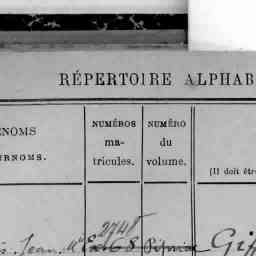 RÉPERTOIRE ALPHAB
ÉNOMS
URNOMS.
NUMÉROS
ma-
tricules.
NUMÉRO
du
volume.
(Il doit être
2748
Jean, M
68
Gif